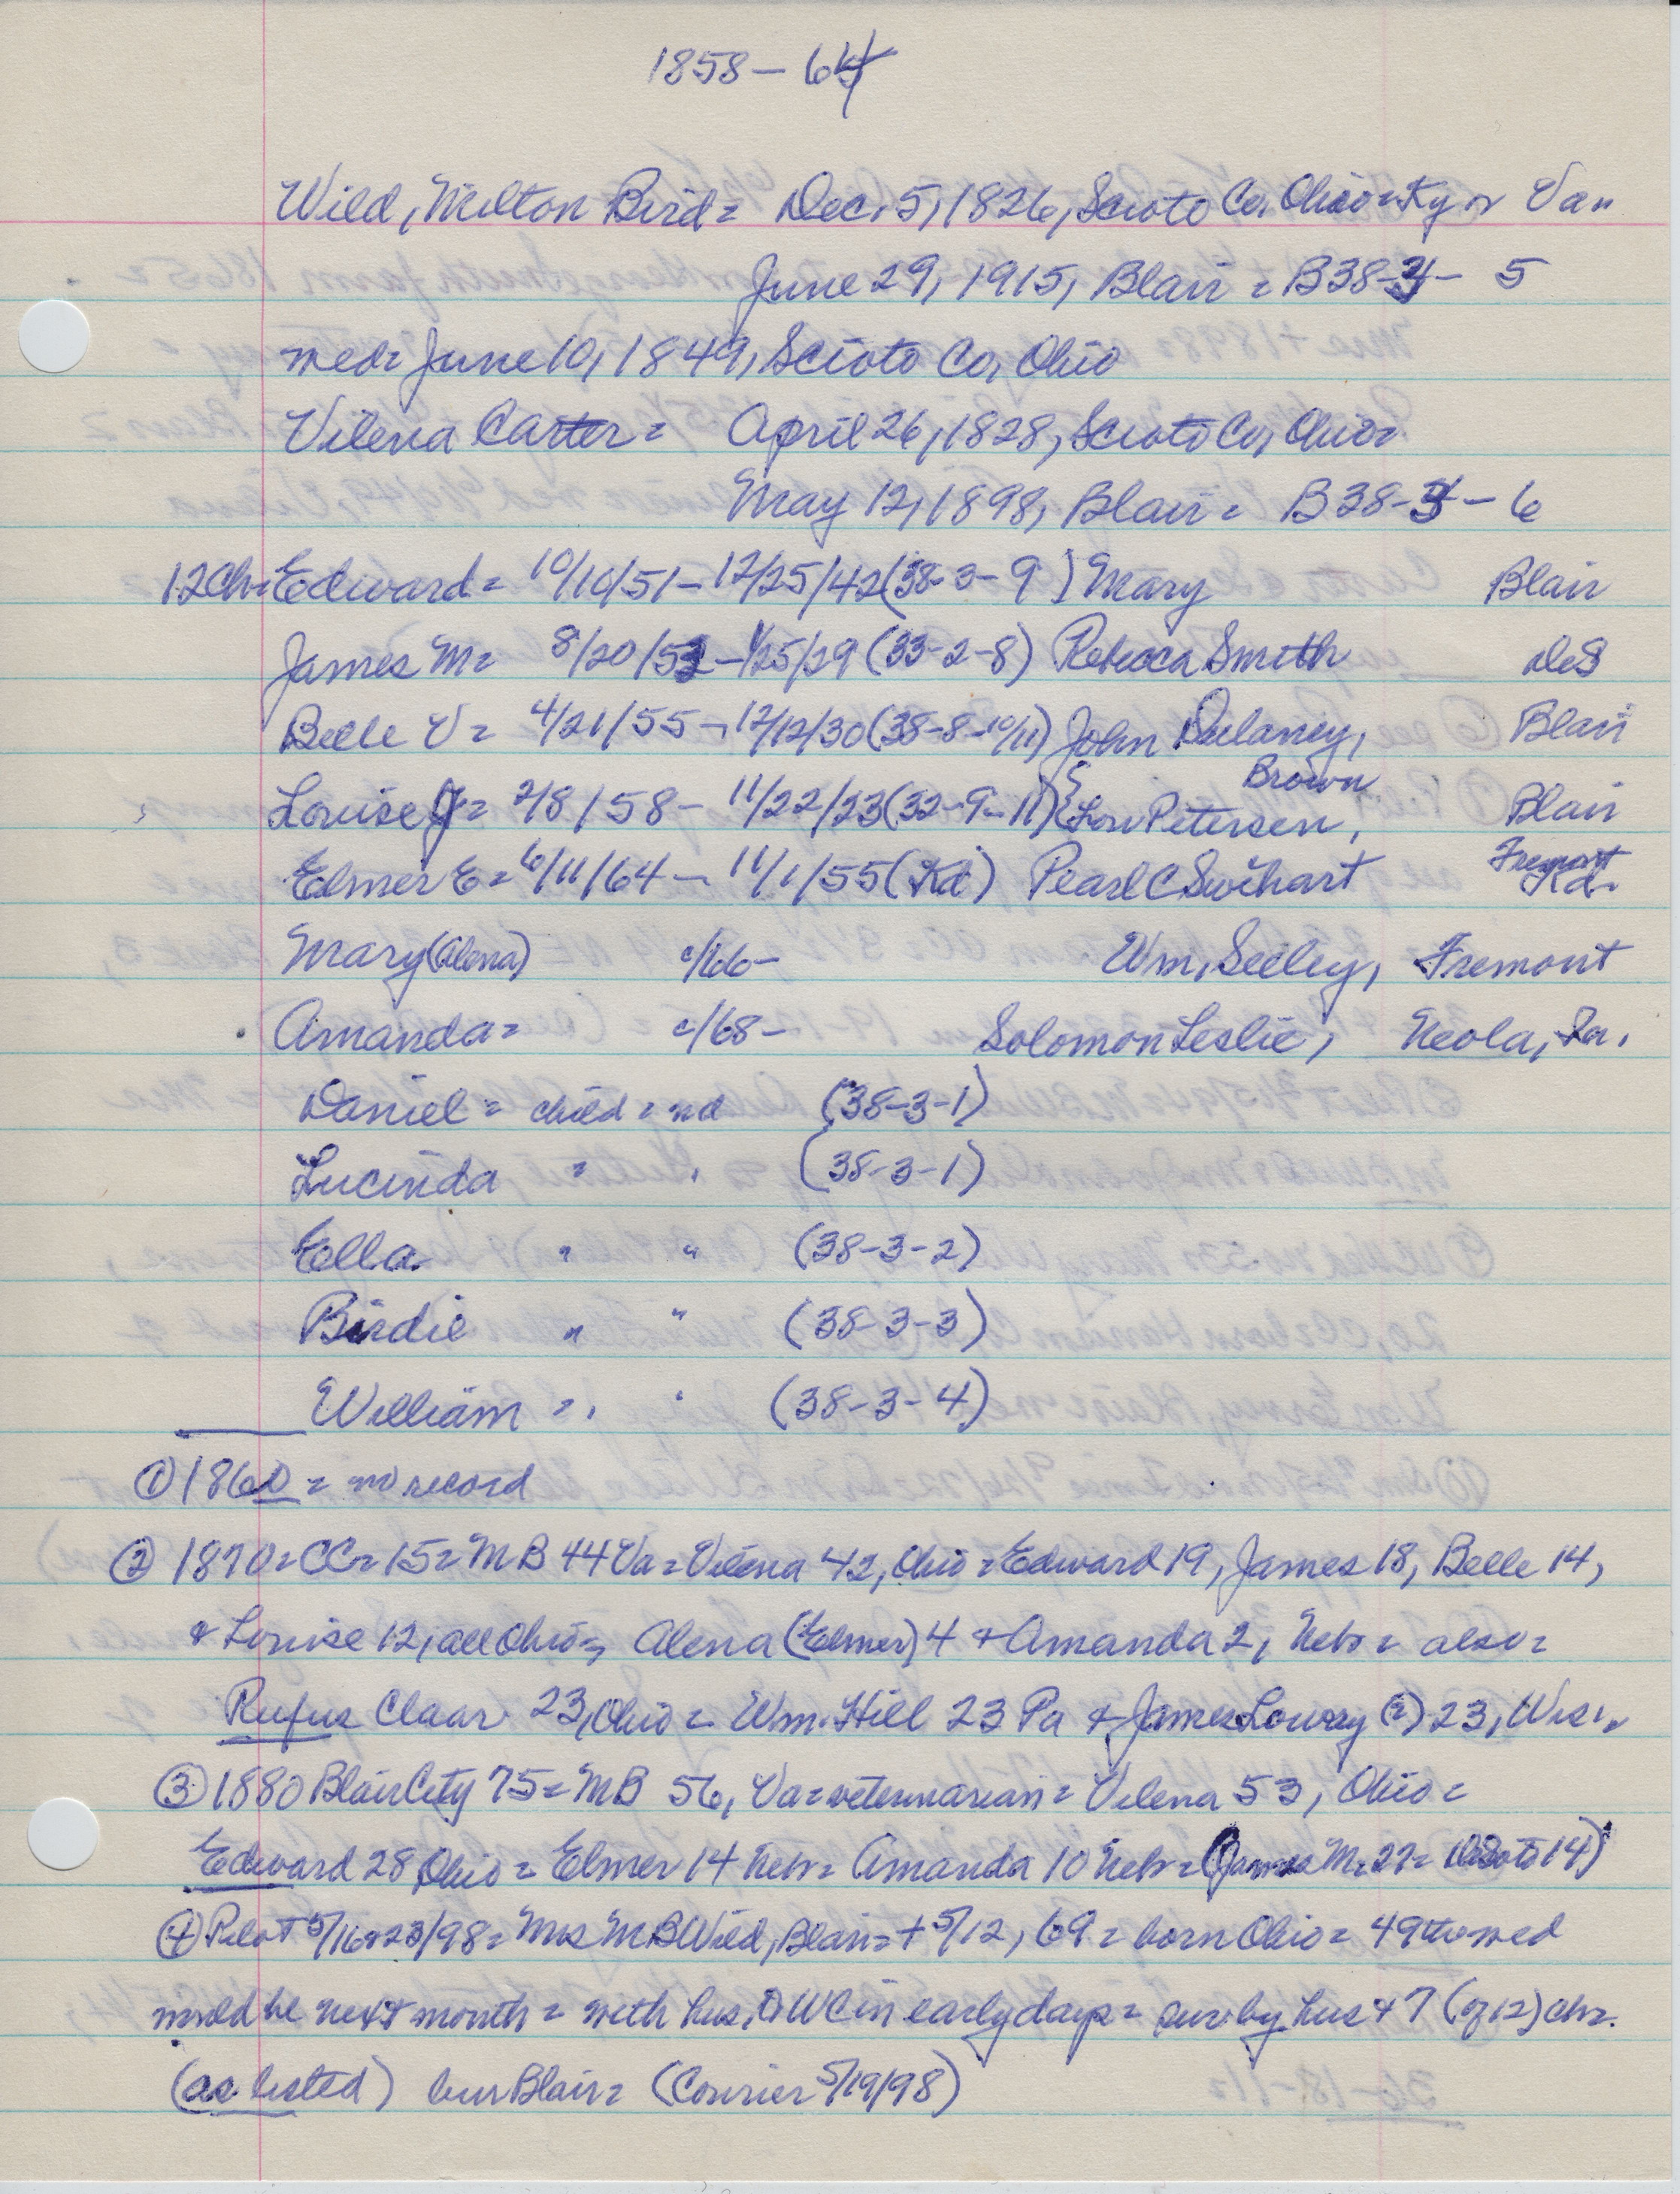 1858 – 64
Wild, Milton Bird = Dec. 5, 1826, Scioto Co, Ohio = Ky or Va =
June 29, 1915, Blair = B38-3- 5
med = June 10, 1849, Scioto Co, Ohio
Vilena Carter = April 26, 1828, Scioto Co, Ohio =
May 12, 1898, Blair = B38-3-6
12 Ch = Edward = 10/10/51 – 12/25/42 (38-3-9) Mary Blair
James M = 8/20/53 – 1/25/29 (33-2-8) Rebecca Smith DeS
Belle V = 4/21/55 – 12/12/30 (38-8-10/11) John Dulaney, Blair
Brown
Louise J = 2/8/58 – 11/22/23 (32-9-11) { Lou Petersen, Blair
Fremont
Elmer E = 6/11/64 – 11/1/55 (Kd) Pearl C Swihart Kd.
Mary (Alena) c/66 – Wm. Seeley, Fremont
Amanda = c/68 – Solomon Leslie, Neola, Ia.
Daniel = child = nd (38-3-1)
Lucinda " " (38-3-1)
Ella " " (38-3-2)
Birdie " " (38-3-3)
William = " " (38-3-4)
① 1860 = no record
② 1870 = CC = 15 = MB 44 Va = Vilena 42, Ohio = Edward 19, James 18, Belle 14,
& Louise 12, all Ohio = Alena (Elmer) 4 + Amanda 2, Neb = also =
Rufus Claar 23, Ohio = Wm. Hill 23 Pa & James Lowry (?) 23, Wis =
③ 1880 Blair City 75 = MB 56, Va = veternarian = Vilena 53, Ohio =
Edward 28 Ohio = Elmer 14 Neb = Amanda 10 Neb = (James M = 27 = DeSoto 14)
④ Pilot 5/16 & 23/98 = Mrs MB Wild, Blair = + 5/12, 69 = born Ohio = 49th wed
would be next month = with hus, to WC in early days = sur by hus + 7 (of 12) chr.
(as listed) bur Blair = (Courier 5/19/98)